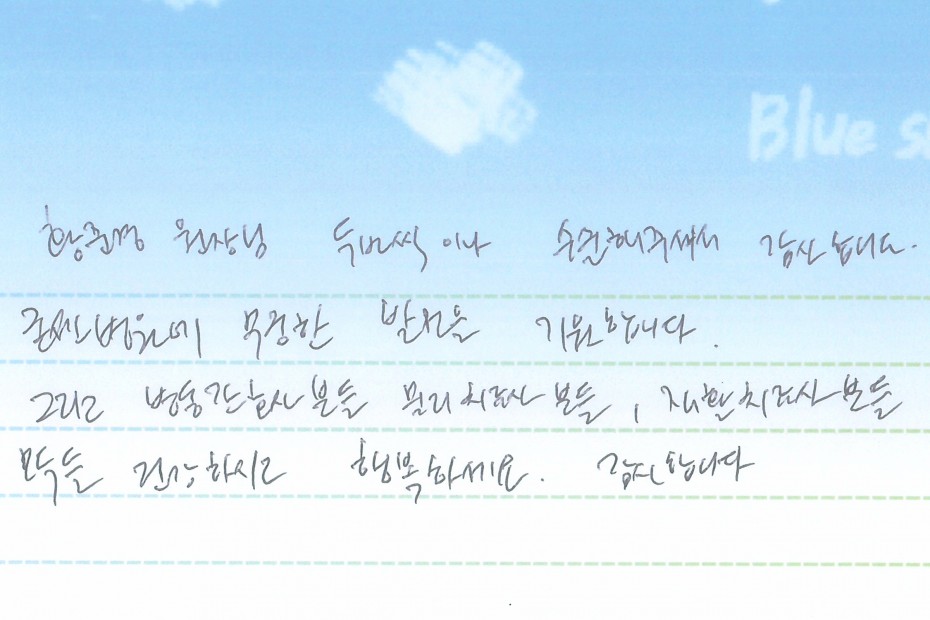 Blue s
원장님 두번씩이나 수술해주셔서 감사합니다.
병원에 무궁한 발전을 기원합니다.
그리고 병동간호사분들 물리치료사분들, 재활치료사분들
모두들 건강하시고 행복하세요. 감사합니다